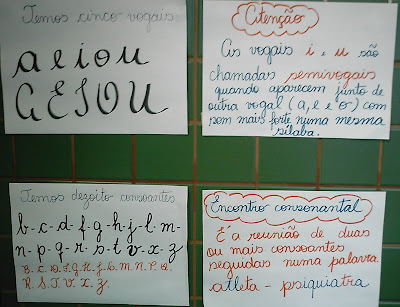 Temos cinco vogais
a e i o u
A E I O U
Atenção
As vogais i e u são
chamadas semivogais
quando aparecem junto de
outra vogal (a, e e o) com
som mais forte numa mesma
sílaba.
Temos dezoito consoantes
b-c-d-f-g-h-j-l-m-
n-p-q-r-s-t-v-x-z
B. C. D. F. G. H. J. L. M. N. P. Q.
R. S. T. V. X. Z.
Encontro consonantal
É a reunião de duas
ou mais consoantes
seguidas numa palavra.
atleta - psiquiatra